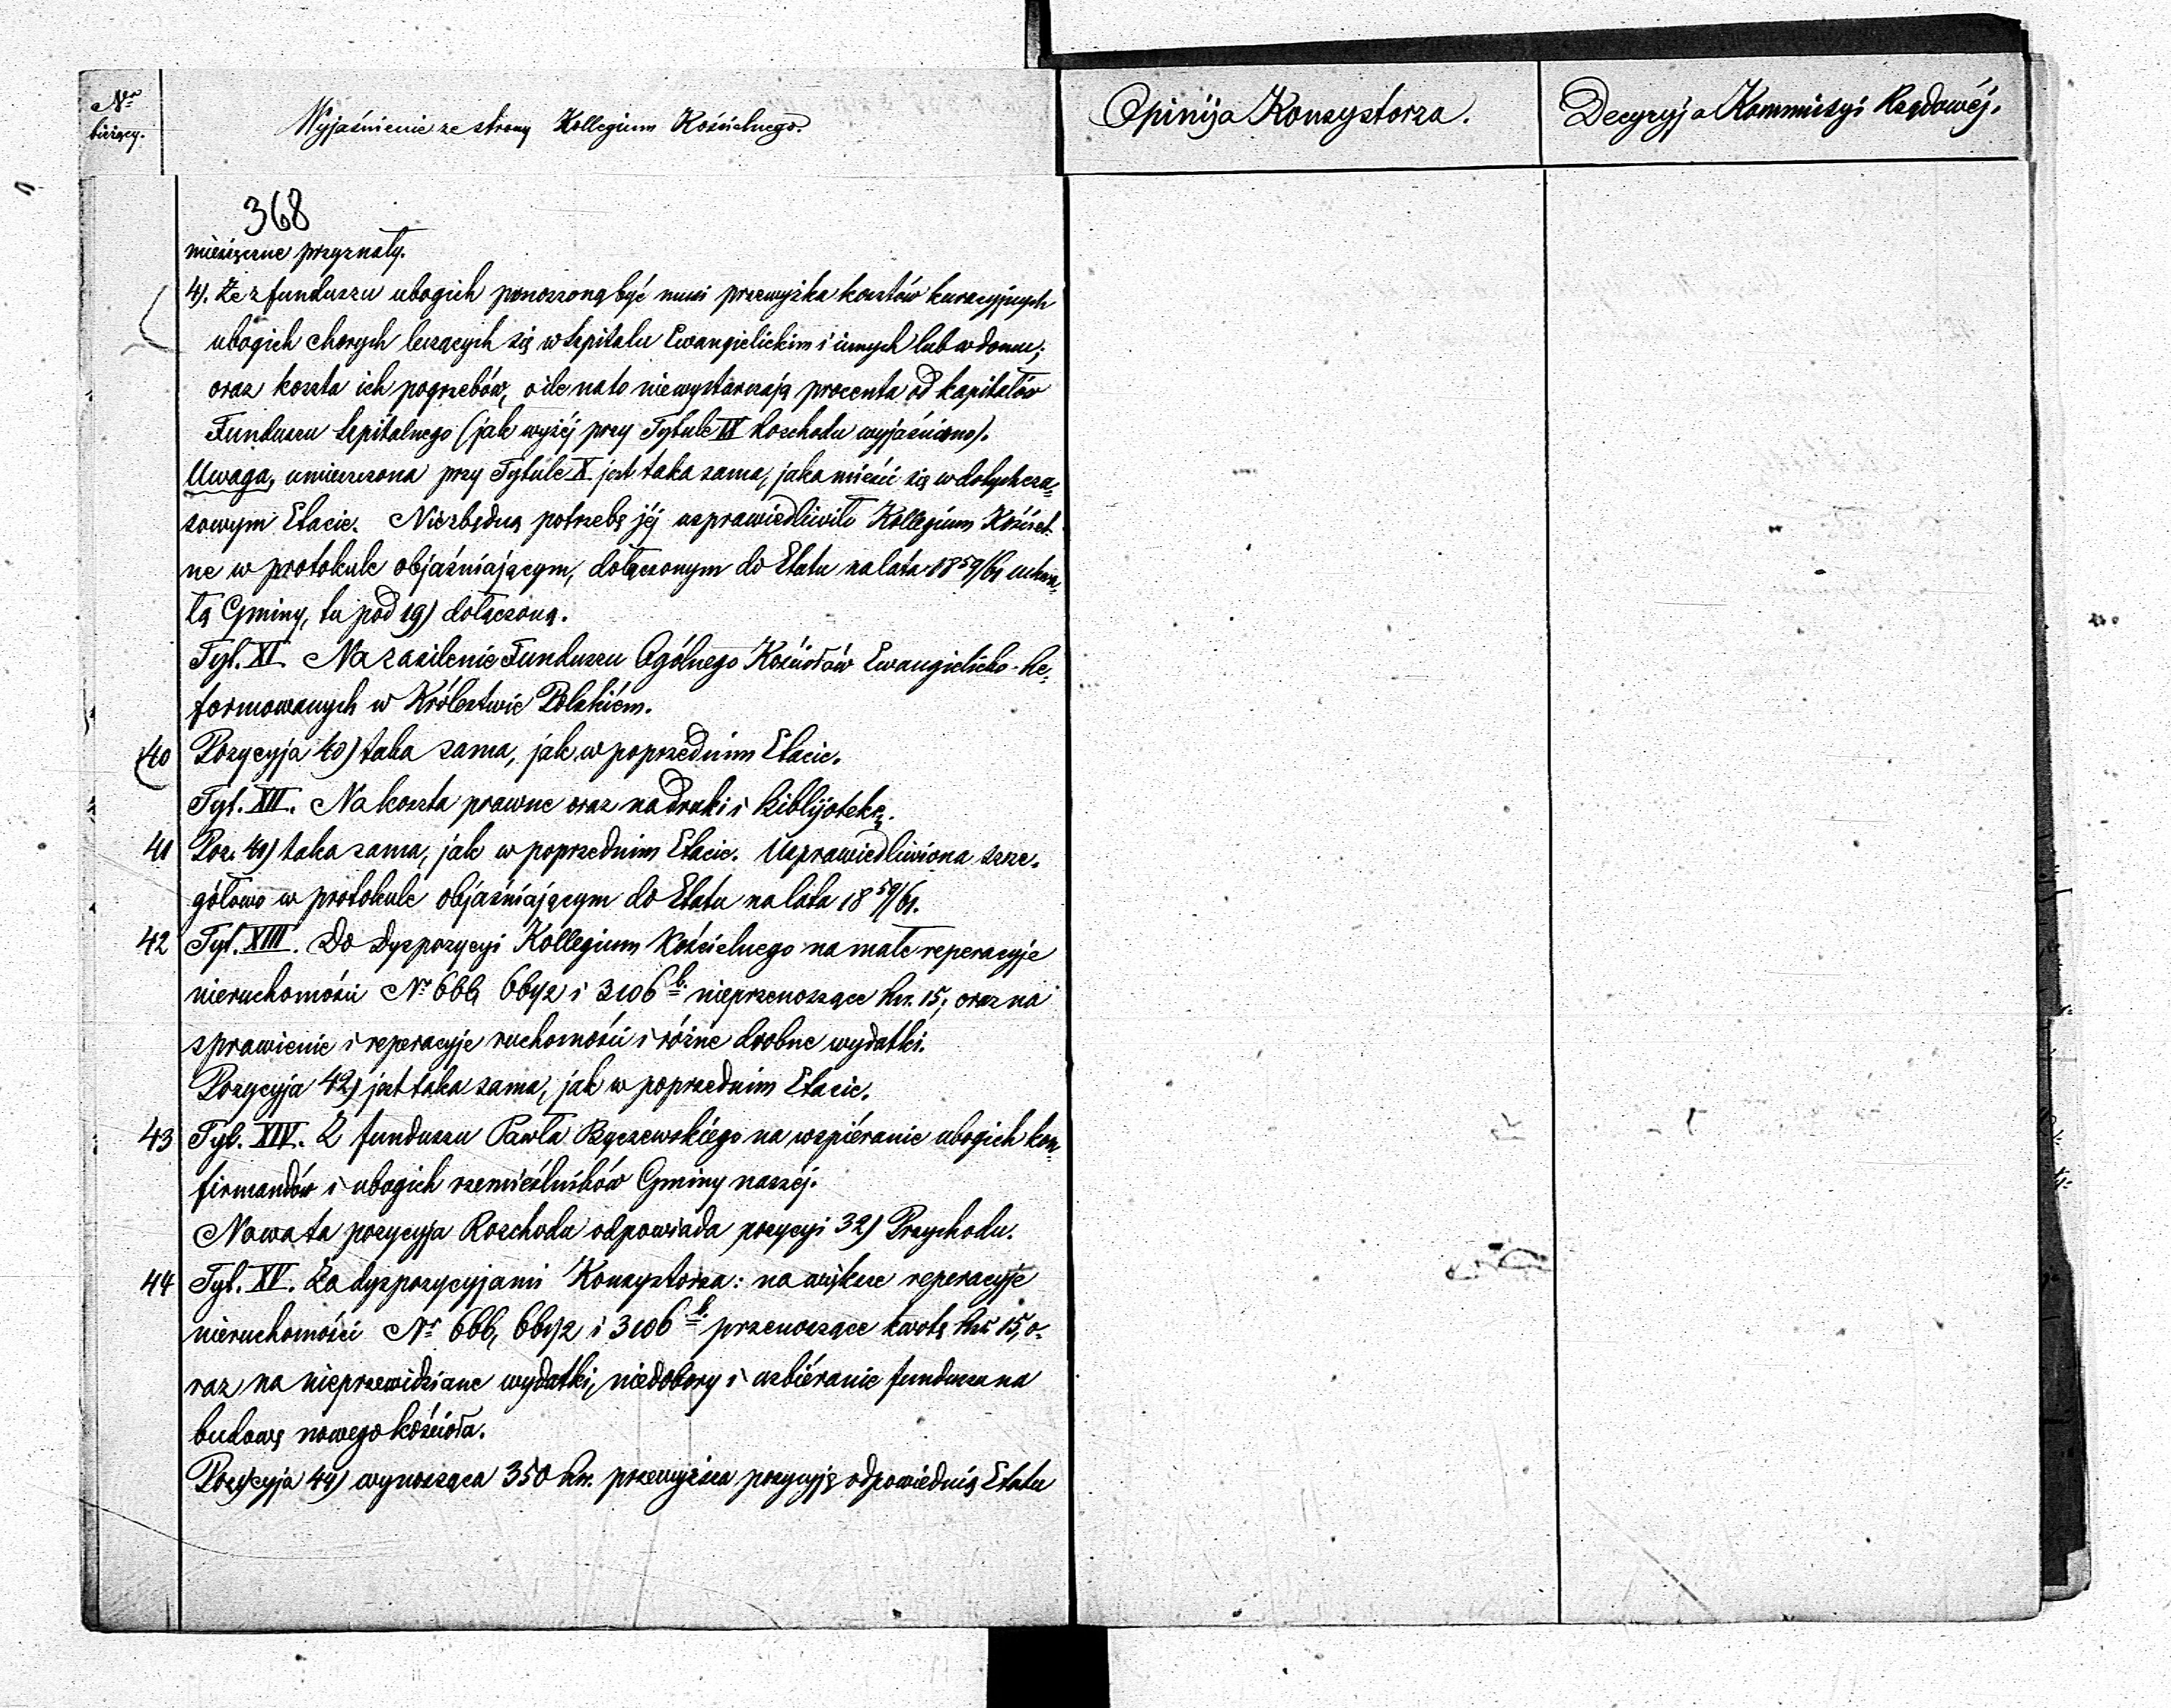 Nr bieżący.
Wyjaśnienie ze strony Kollegium Kościelnego.
Opinija Konsystorza.
Decyzyja Kommisyi Rządowéj.
368
miesięczne przyznały.
4). Że z funduszu ubogich ponoszoną być musi przewyżka kosztów kuracyjnych
ubogich chorych leczących się w Szpitalu Ewangielickim i innych lub w domu;
oraz koszta ich pogrzebów, o ile na to niewystarczają procenta od kapitałów
Funduszu Szpitalnego (jak wyżéj przy Tytule IX Rozchodu wyjaśniono).
Uwaga, umieszczona przy Tytule X. jest taka sama, jaka mieści się w dotychcza-
sowym Etacie. Niezbędną potrzebę jéj usprawiedliwiło Kollegium Kościel-
ne w protokule objaśniającym, dołączonym do Etatu na lata 1859/61 uchwa-
łą Gminy, tu pod 19) dołączoną.
Tyt. XI. Na zasilenie Funduszu Ogólnego Kościołów Ewangielicko-Re-
formowanych w Królestwie Polskiém.
40 Pozycyja 40) taka sama, jak w poprzednim Etacie.
Tyt. XII. Na koszta prawne oraz na druki i Biblijotekę.
41 Poz. 41) taka sama, jak w poprzednim Etacie. Usprawiedliwiona szcze-
gółowo w protokule objaśniającym do Etatu na lata 1859/61.
42 Tyt. XIII. Do dyspozycyi Kollegium Kościelnego na małe reperacyje
nieruchomości Nr 666, 667/2 i 3106 b. nieprzenoszące Rsr. 15; oraz na
sprawienie i reperacyje ruchomości i różne drobne wydatki.
Pozycyja 42) jest taka sama, jak w poprzednim Etacie.
43 Tyt. XIV. Z funduszu Pawła Byczewskiego na wspiéranie ubogich kon-
firmandów i ubogich rzemieślników Gminy naszéj.
Nowa ta pozycyja Rozchodu odpowiada pozycyi 32) Przychodu.
44 Tyt. XV. Za dyspozycyjami Konsystorza: na większe reperacyje
nieruchomości Nr 666, 667/2 i 3106 b. przenoszące kwotę Rsr 15, o-
raz na nieprzewidziane wydatki, niedobory i uzbiéranie funduszu na
budowę nowego kościoła.
Pozycyja 44) wynosząca 350 Rsr. przewyższa pozycyję odpowiednią Etatu